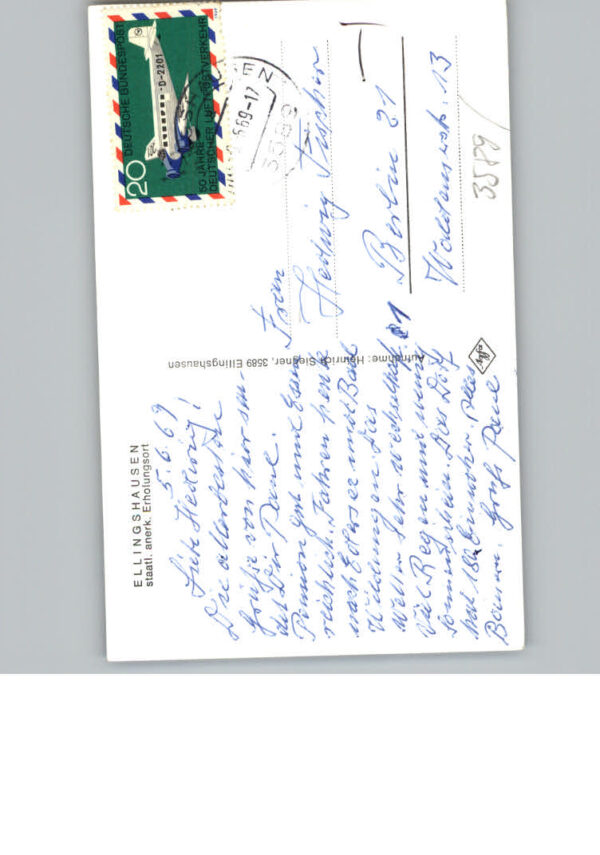 ELLINGSHAUSEN
staatl. anerk. Erholungsort
5.6.69
Liebe Hedwig!
Die allerbesten
Grüße von hier sen-
det Dir Paul.
Pension gut und Essen
reichlich. Fahren heute
nach Edersee und Bad
Wildungen. Das
Wetter sehr wechselhaft
viel Regen und wenig
Sonnenschein. Das Dorf
hat 180 Einwohner. Alles
Bauern. Gruß Paul
Aufnahme: Heinrich Siegner, 3589 Ellingshausen
Agfa
20
DEUTSCHE BUNDESPOST
D-2201
50 JAHRE
DEUTSCHER LUFTPOSTVERKEHR
3589
.6.69-17
Frau
Hedwig Fischer
1 Berlin 21
13
3589